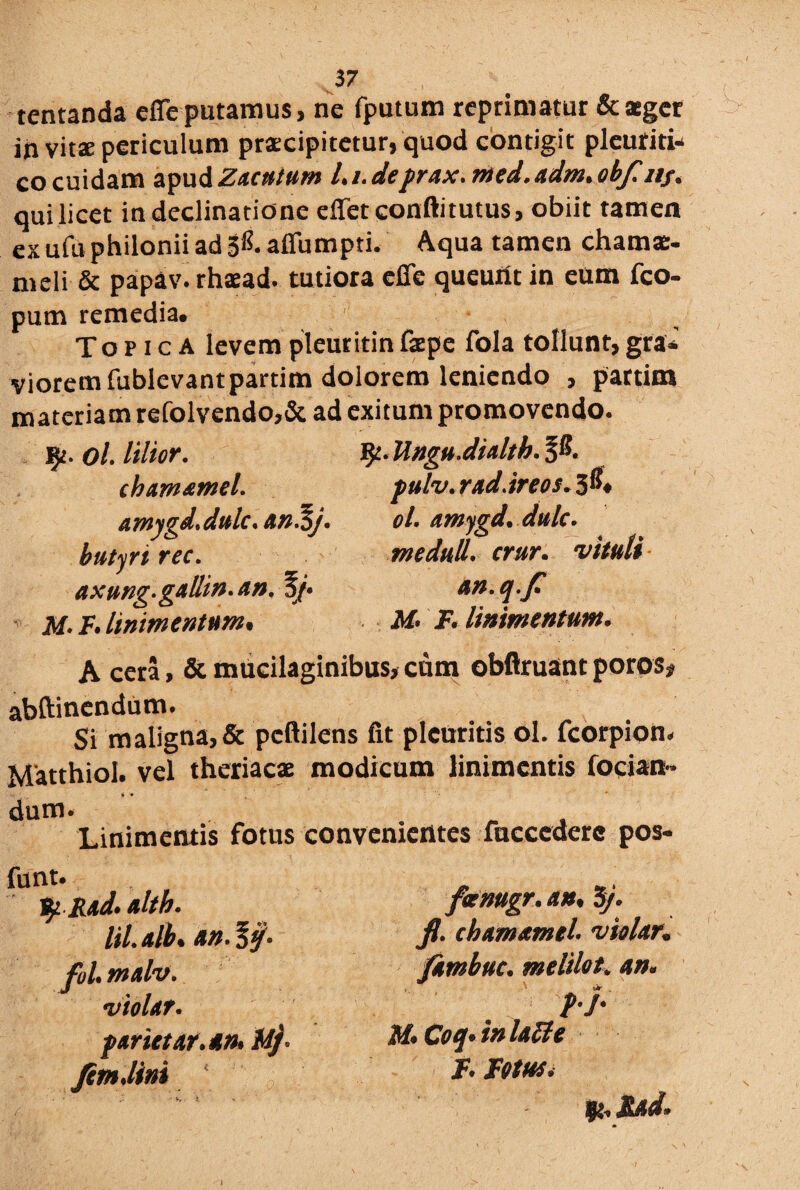 37
tentanda eſſe putamus, ne ſputum reprimatur & æger
in vitæ periculum præcipitetur, quod contigit pleuriti-
co cuidam apud Zacutum l. 1. de prax. med. adm. obſ. 115.
qui licet in declinatione eſſet conſtitutus, obiit tamen
ex uſu philonii ad ʒß. aſſumpti. Aqua tamen chamæ-
meli & papáv. rhæad. tutiora eſſe queunt in eum ſco-
pum remedia.
TOPICA levem pleuritin ſæpe ſola tollunt, gra-
viorem ſublevant partim dolorem leniendo , partim
materiam reſolvendo, & ad exitum promovendo.
℞. Ol. lilior.
chamæmel.
amygd. dulc. an. ℥j.
butyri rec.
axung. gallin. an. ℥j.
M. F. linimentum.
℞. Ungu. dialth. ℥ß.
pulv. rad. ireos. ʒß.
ol. amygd. dulc.
medull. crur. vituli
an. q. ſ.
M. F. linimentum.
A cerâ, & mucilaginibus, cùm obſtruant poros,
abſtinendum.
Si maligna, & peſtilens ſit pleuritis ol. ſcorpion.
Matthiol. vel theriacæ modicum linimentis ſocian-
dum.
Linimentis fotus convenientes ſuccedere pos-
ſunt.
℞ Rad. alth.
lil. alb. an. ℥ij.
fol. malv.
violar.
parietar. an. Mj.
ſem. lini
fœnugr. an. ℥j.
fl. chamæmel. violar.
ſambuc. melilot. an.
p. j.
M. Coq. in lacte
F. Fotus.
℞. Rad.